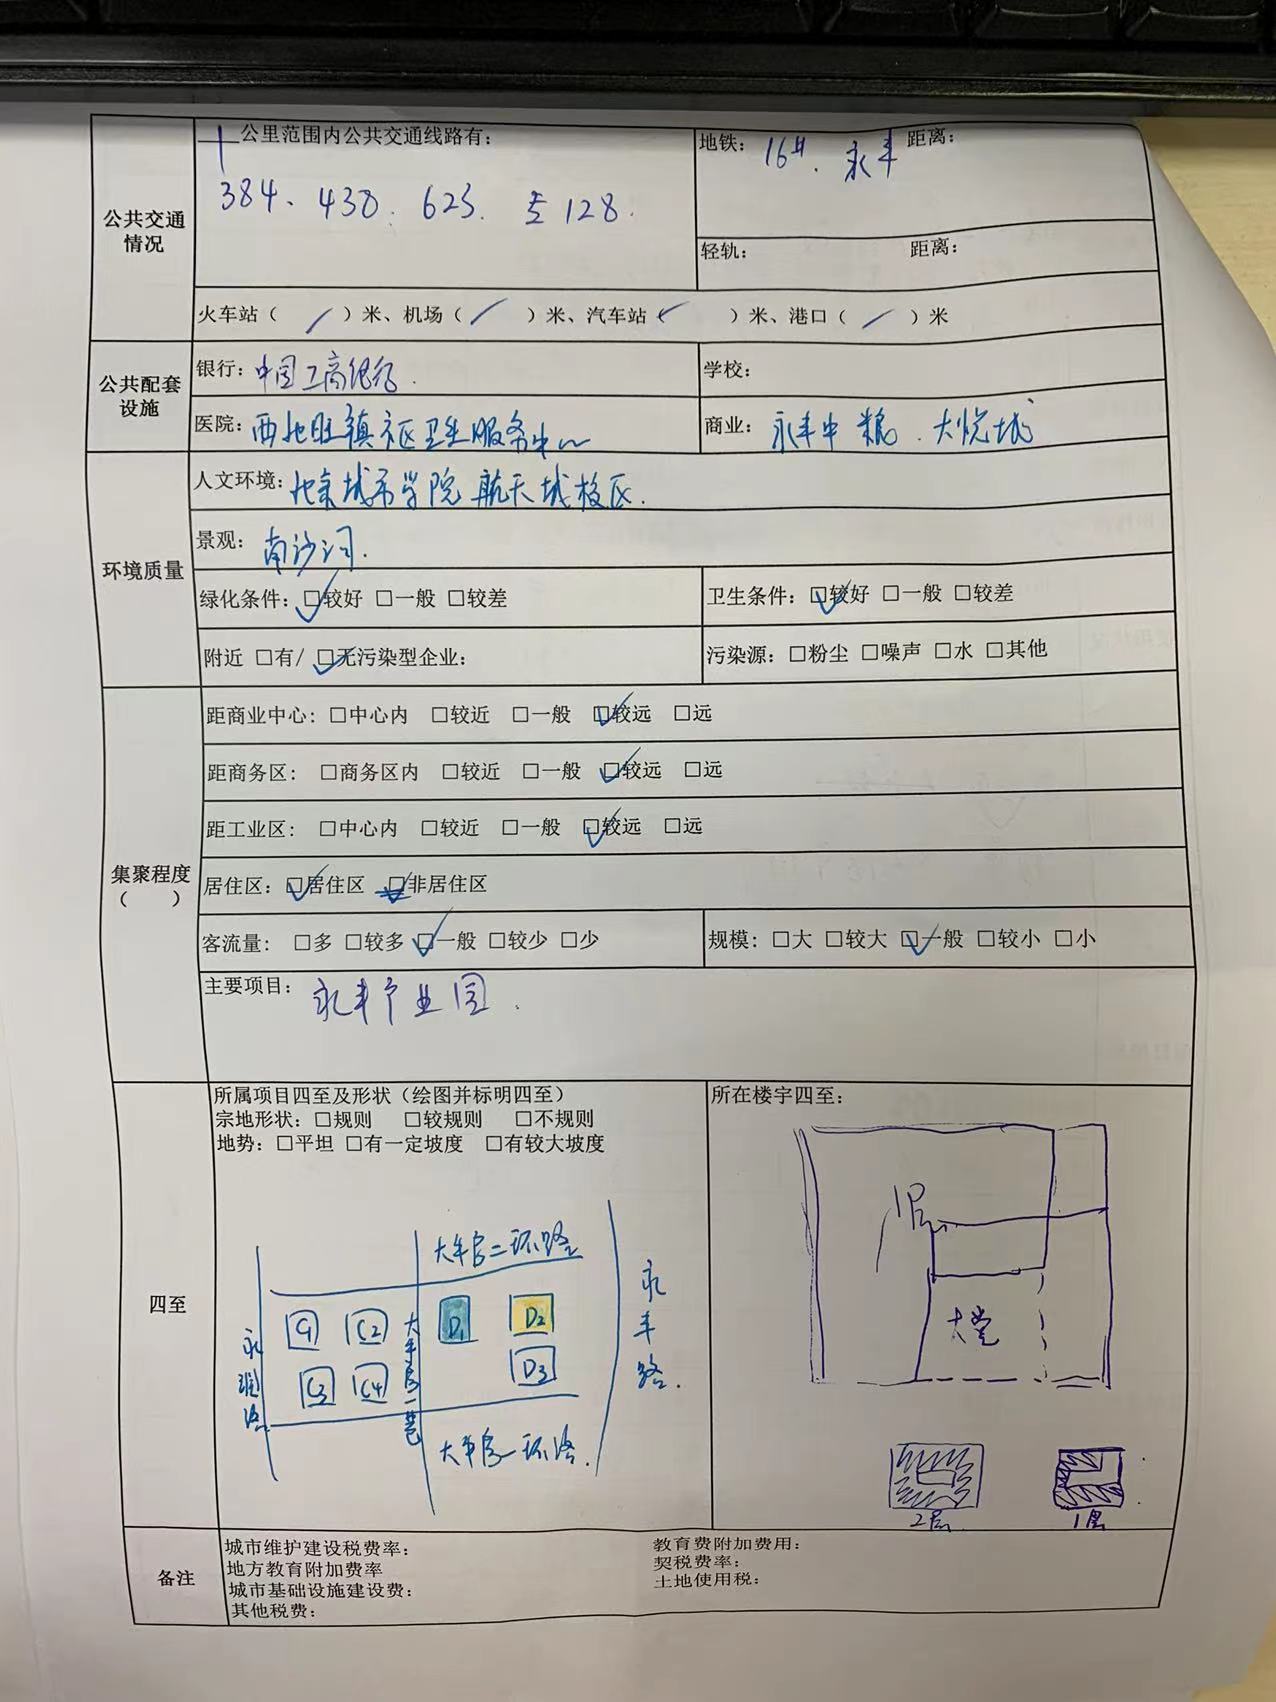 公共交通情况
公里范围内公共交通线路有：
384、438、623、专128.
地铁：16号、永丰 距离：
轻轨： 距离：
火车站（ / ）米、机场（ / ）米、汽车站（ / ）米、港口（ / ）米
公共配套设施
银行：中国工商银行.
学校：
医院：西北旺镇社区卫生服务中心
商业：永丰中粮.大悦城
环境质量
人文环境：北京城市学院 航天城校区.
景观：南沙河.
绿化条件：☑较好 □一般 □较差
卫生条件：☑较好 □一般 □较差
附近 □有/ ☑无污染型企业：
污染源：□粉尘 □噪声 □水 □其他
集聚程度
（ ）
距商业中心：□中心内 □较近 □一般 ☑较远 □远
距商务区： □商务区内 □较近 □一般 ☑较远 □远
距工业区： □中心内 □较近 □一般 ☑较远 □远
居住区：☑居住区 ☑非居住区
客流量： □多 □较多 ☑一般 □较少 □少
规模：□大 □较大 ☑一般 □较小 □小
主要项目：永丰产业园.
四至
所属项目四至及形状（绘图并标明四至）
宗地形状：□规则 □较规则 □不规则
地势：□平坦 □有一定坡度 □有较大坡度
大牟房二环路
永
丰
路.
C1 C2 D1 D2
C3 C4 D3
大牟房一巷
大牟房一环路.
所在楼宇四至：
1层
大堂
2层
1层
备注
城市维护建设税费率：
地方教育附加费率
城市基础设施建设费：
其他税费：
教育费附加费用：
契税费率：
土地使用税：